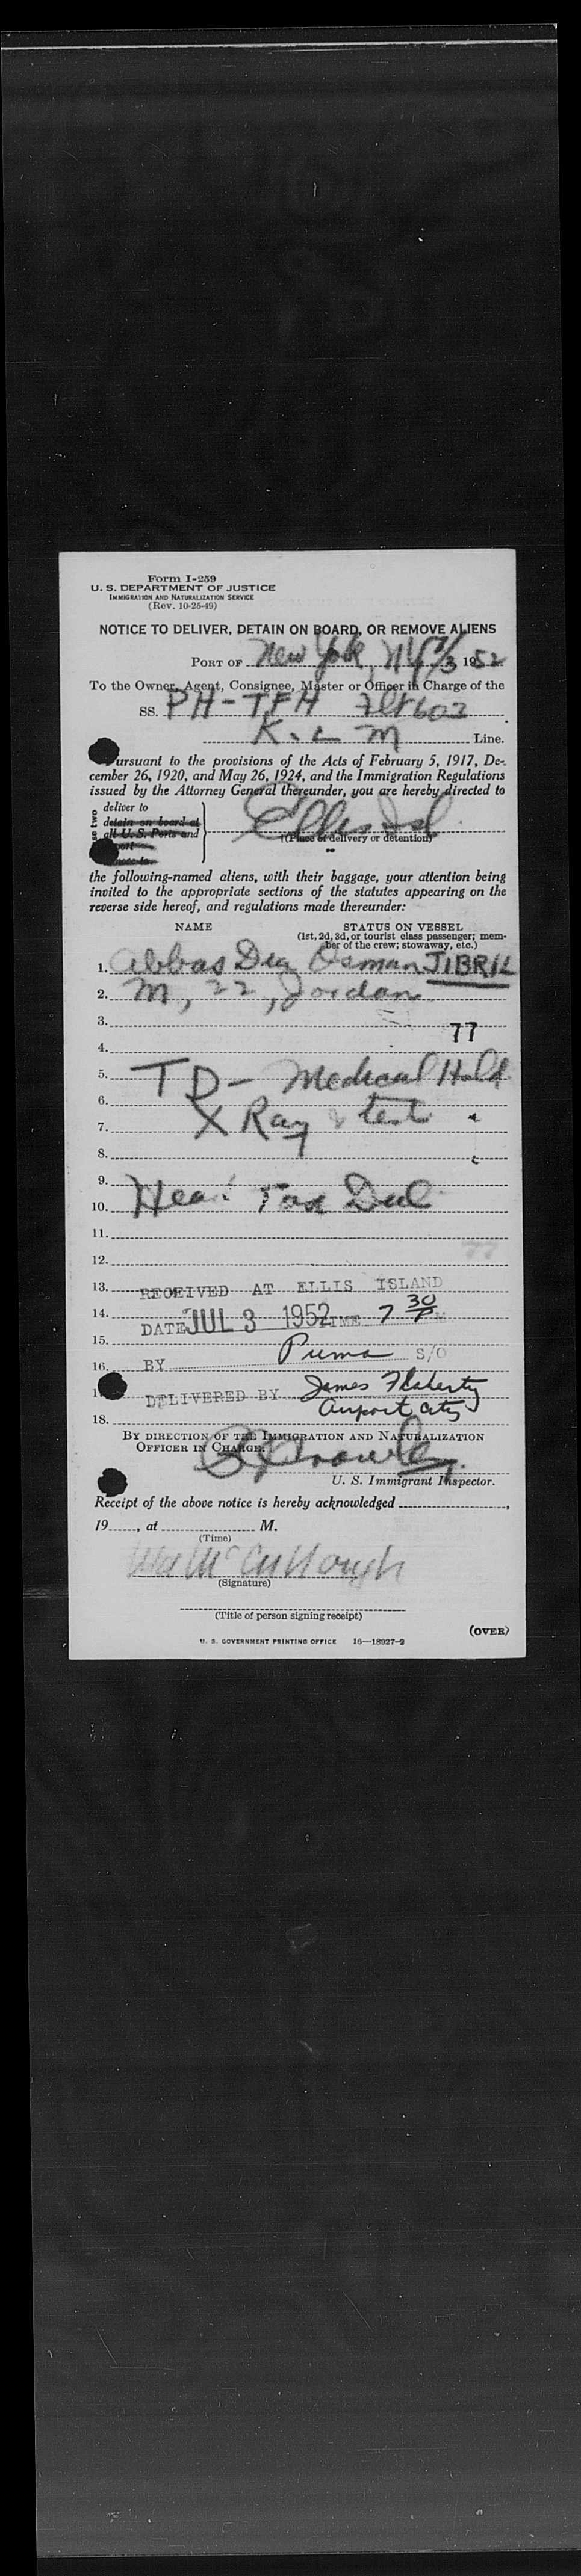 Form I-259
U. S. DEPARTMENT OF JUSTICE
IMMIGRATION AND NATURALIZATION SERVICE
(Rev. 10-25-49)
NOTICE TO DELIVER, DETAIN ON BOARD, OR REMOVE ALIENS
PORT OF New York, NY 7/3 1952
To the Owner, Agent, Consignee, Master or Officer in Charge of the
SS. PH-TFH Flt 603
K. L M Line.
ursuant to the provisions of the Acts of February 5, 1917, De-
cember 26, 1920, and May 26, 1924, and the Immigration Regulations
issued by the Attorney General thereunder, you are hereby directed to
deliver to
detain on board at
all U. S. Ports and
Ellis Isl.
(Place of delivery or detention)
the following-named aliens, with their baggage, your attention being
invited to the appropriate sections of the statutes appearing on the
reverse side hereof, and regulations made thereunder:
NAME STATUS ON VESSEL
(1st, 2d, 3d, or tourist class passenger; mem-
ber of the crew; stowaway, etc.)
1. Abbas Osman JIBRIL
2. M, 22, Jordan
3.
77
4.
5. TD - Medical Hold
6.
7. X Ray & test
8.
9.
10. Head Tax Due
11.
12.
13. RECEIVED AT ELLIS ISLAND
14. DATE JUL 3 1952 TIME 7 30 P M
15.
16. BY Puma S/O
1 DELIVERED BY James Flaherty
18. Airport City
BY DIRECTION OF THE IMMIGRATION AND NATURALIZATION
OFFICER IN CHARGE:
Crowley
U. S. Immigrant Inspector.
Receipt of the above notice is hereby acknowledged ,
19 , at M.
(Time)
McCullough
(Signature)
(Title of person signing receipt)
(OVER)
U. S. GOVERNMENT PRINTING OFFICE 16—18927-2